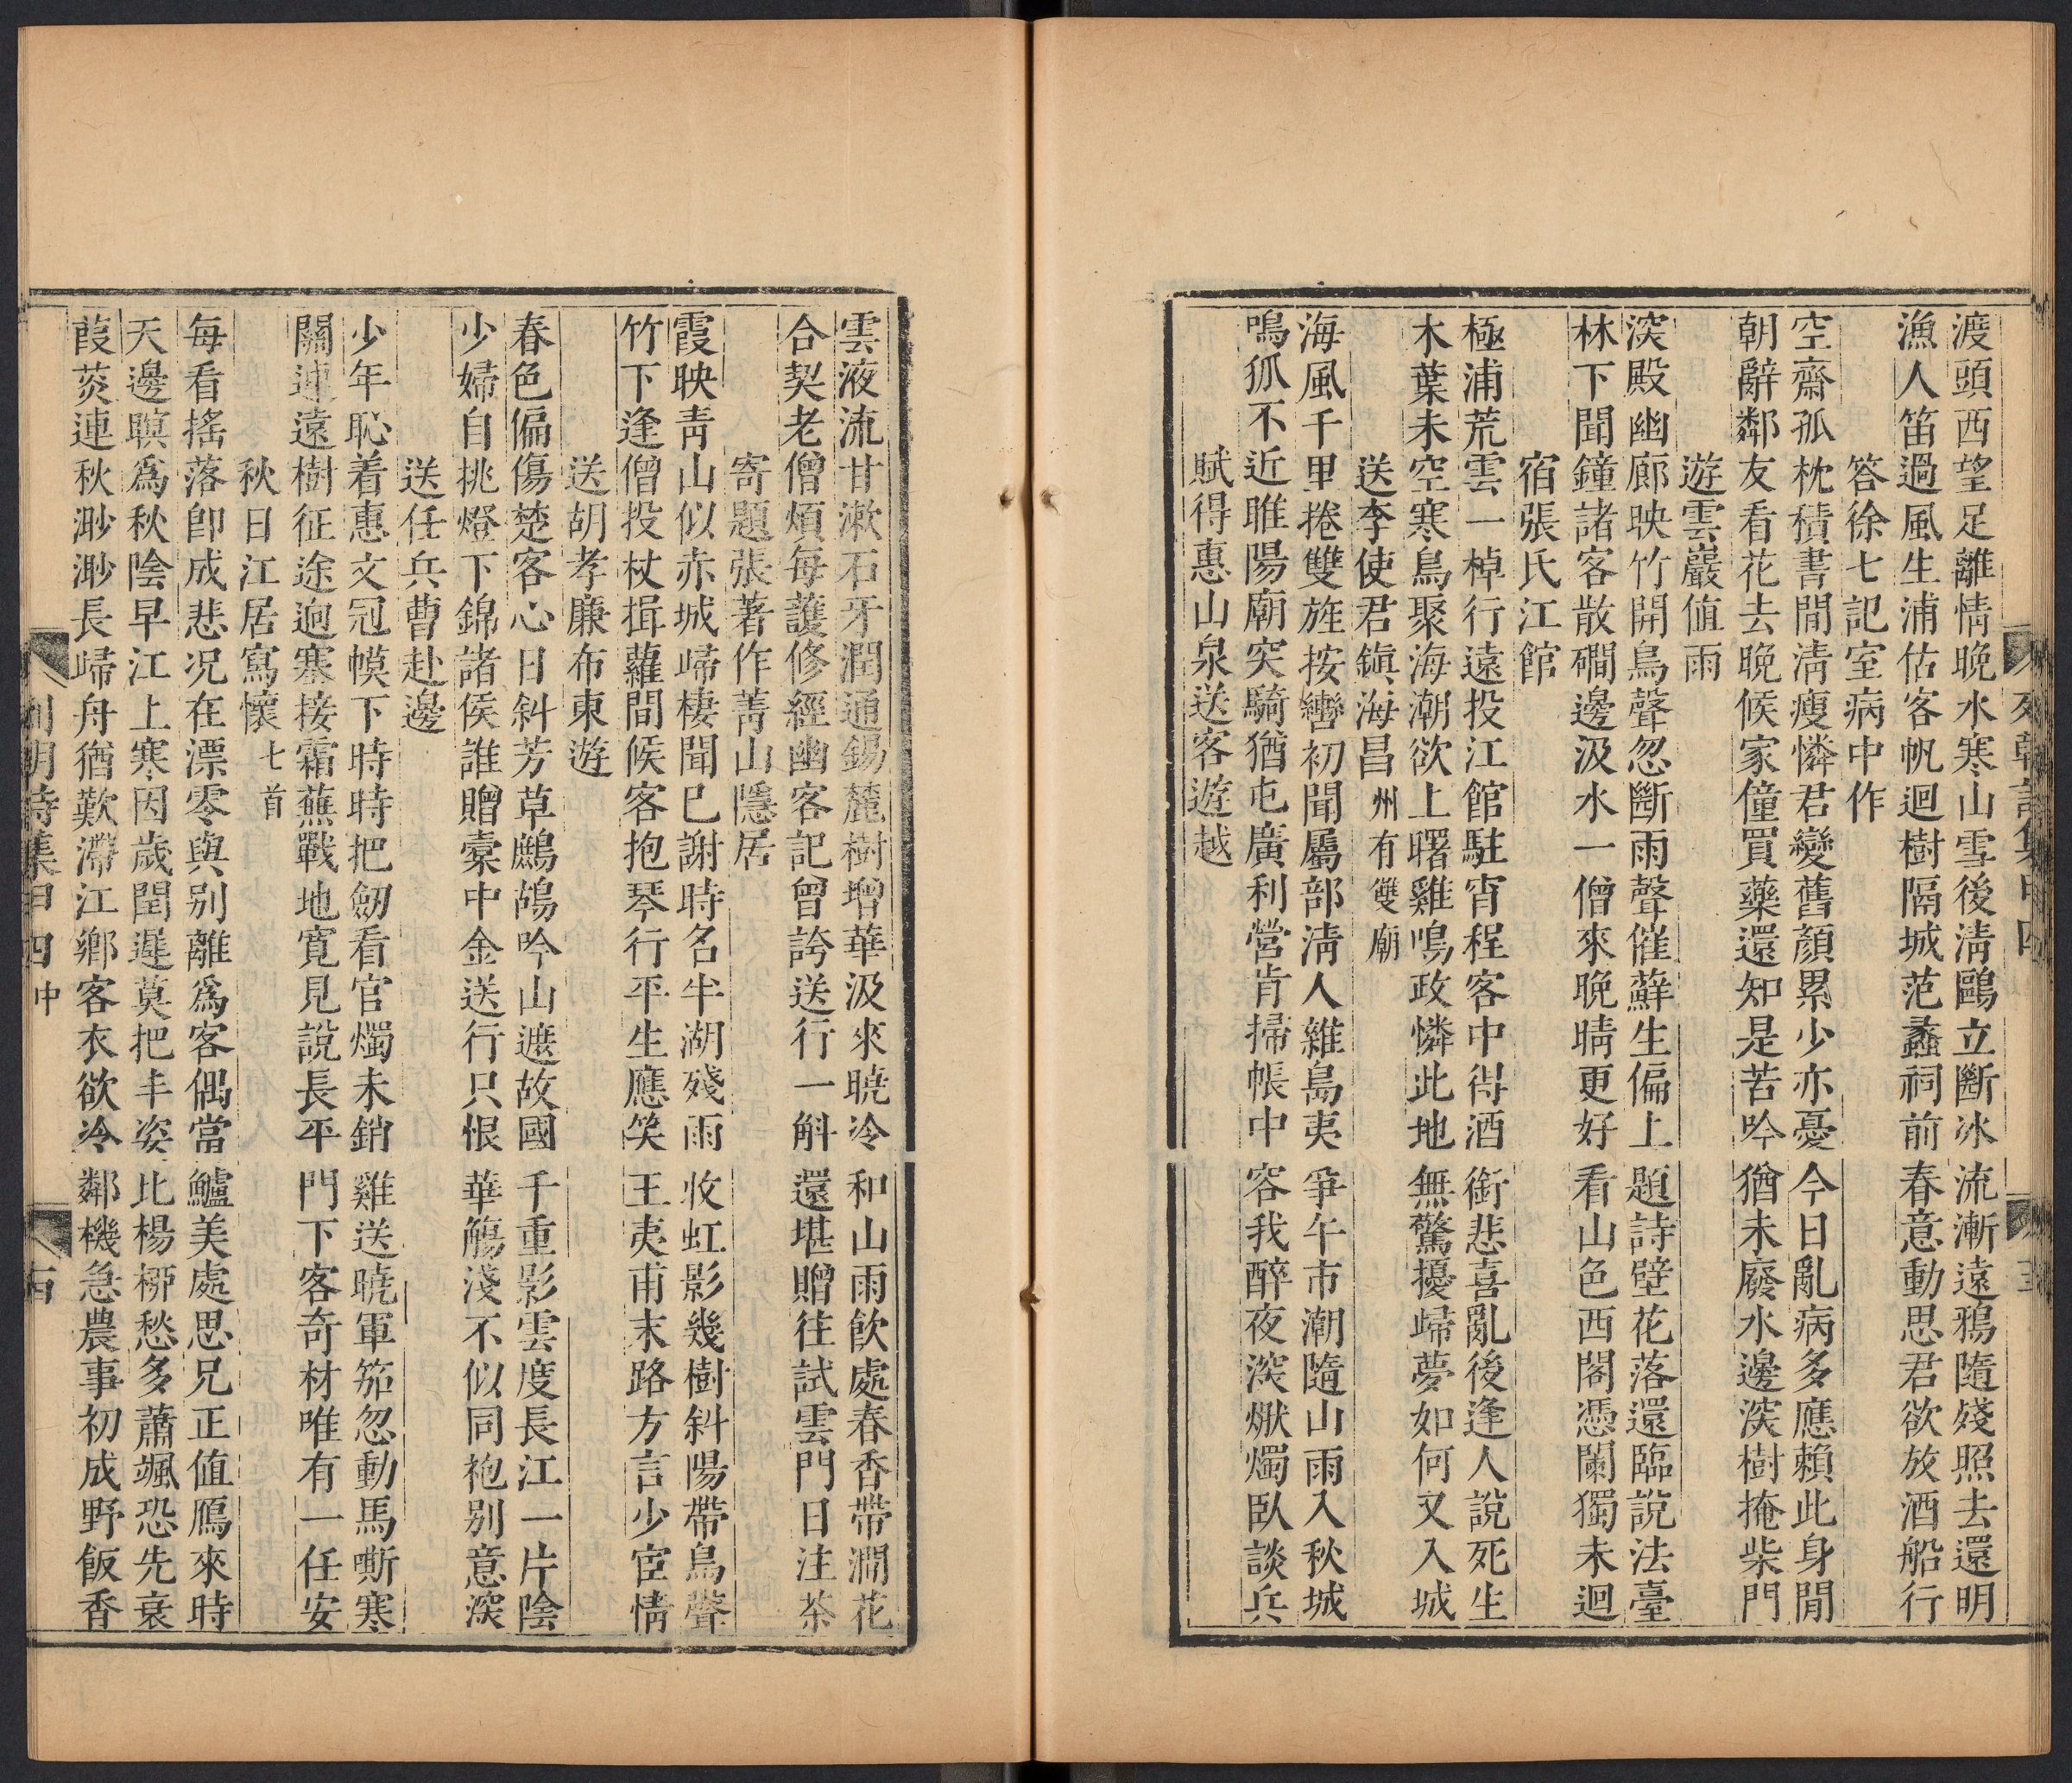 渡頭西望足離情晚水寒山雪後淸鷗立斷冰流漸遠鴉隨殘照去還明
漁人笛過風生浦估客帆迴樹隔城范蠡祠前春意動思君欲放酒船行
答徐七記室病中作
空齋孤枕積書閒淸瘦憐君變舊顏累少亦憂今日亂病多應賴此身閒
朝辭鄰友看花去晚候家僮買藥還知是苦吟猶未廢水邊深樹掩柴門
遊雲巖値雨
深殿幽廊映竹開鳥聲忽斷雨聲催蘚生偏上題詩壁花落還臨說法臺
林下聞鐘諸客散磵邊汲水一僧來晚晴更好看山色西閣憑闌獨未迴
宿張氏江館
極浦荒雲一棹行遠投江館駐宵程客中得酒銜悲喜亂後逢人說死生
木葉未空寒鳥聚海潮欲上曙雞鳴政憐此地無驚擾歸夢如何又入城
送李使君鎭海昌 州有雙廟
海風千里捲雙旌按轡初聞屬部淸人雜島夷爭午市潮隨山雨入秋城
鳴狐不近睢陽廟突騎猶屯廣利營肯掃帳中容我醉夜深爥臥談兵
賦得惠山泉送客遊越
雲液流甘漱石牙潤通錫麓樹增華汲來曉冷和山雨飲處春香帶澗花
合契老僧煩每護修經幽客記曾誇送行一斛還堪贈往試雲門日注茶
寄題張著作菁山隱居
霞映靑山似赤城歸棲聞已謝時名半湖殘雨收虹影幾樹斜陽帶鳥聲
竹下逢僧投杖揖蘿間候客抱琴行平生應笑王夷甫末路方言少宦情
送胡孝廉布東遊
春色偏傷楚客心日斜芳草鷓鴣吟山遮故國千重影雲度長江一片陰
少婦自挑燈下錦諸侯誰贈橐中金送行只恨華觴淺不似同袍別意深
送任兵曹赴邊
少年恥着惠文冠幙下時時把劒看官燭未銷雞送曉軍笳忽動馬嘶寒
關連遠樹征途逈塞接霜蕪戰地寬見說長平門下客奇材唯有一任安
秋日江居寫懷 七首
每看搖落卽成悲况在漂零與別離爲客偶當鱸美處思兄正值鴈來時
天邊暝爲秋陰早江上寒因歲閏遲莫把丰姿比楊柳愁多蕭颯恐先衰
葭菼連秋渺渺長歸舟猶歎滯江鄉客衣欲冷鄰機急農事初成野飯香
列朝詩集甲四